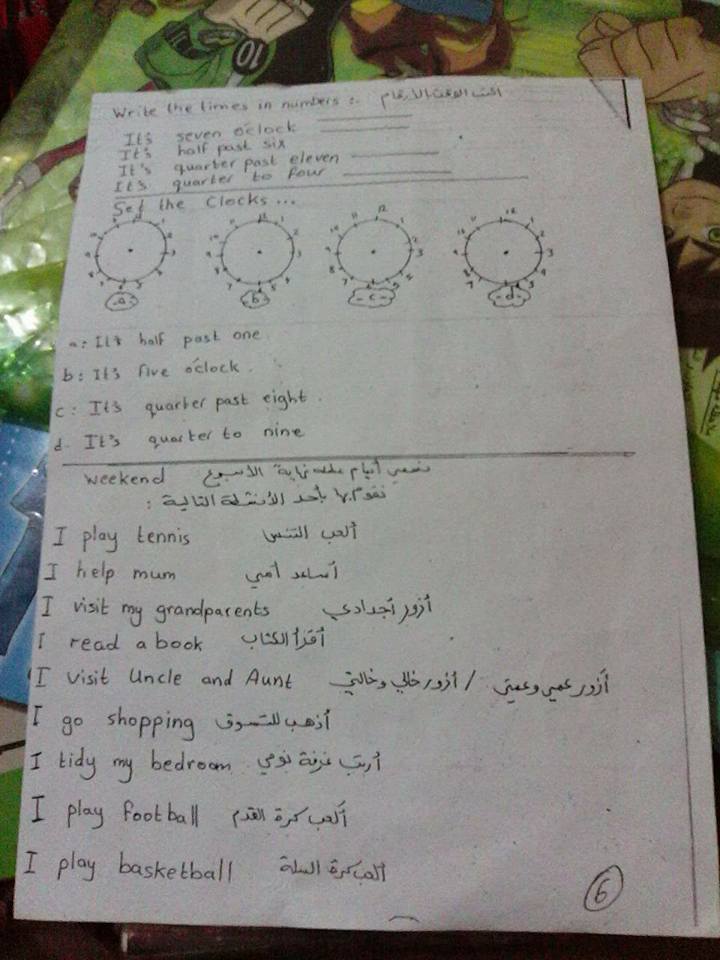 Write the times in numbers :. اكتب الوقت بالأرقام
It's seven o'clock
It's half past six
It's quarter past eleven
It's quarter to four
Set the Clocks ...
-a-
-b-
-c-
-d-
a: It's half past one.
b: It's five o'clock.
c: It's quarter past eight.
d. It's quarter to nine
weekend نقضي أيام عطلة نهاية الأسبوع
نقوم بها بأحد الأنشطة التالية :
I play tennis ألعب التنس
I help mum أساعد أمي
I visit my grandparents أزور أجدادي
I read a book أقرأ الكتاب
I visit Uncle and Aunt أزور عمي وعمتي / أزور خالي وخالتي
I go shopping أذهب للتسوق
I tidy my bedroom أرتب غرفة نومي
I play football ألعب كرة القدم
I play basketball ألعب كرة السلة
6
10